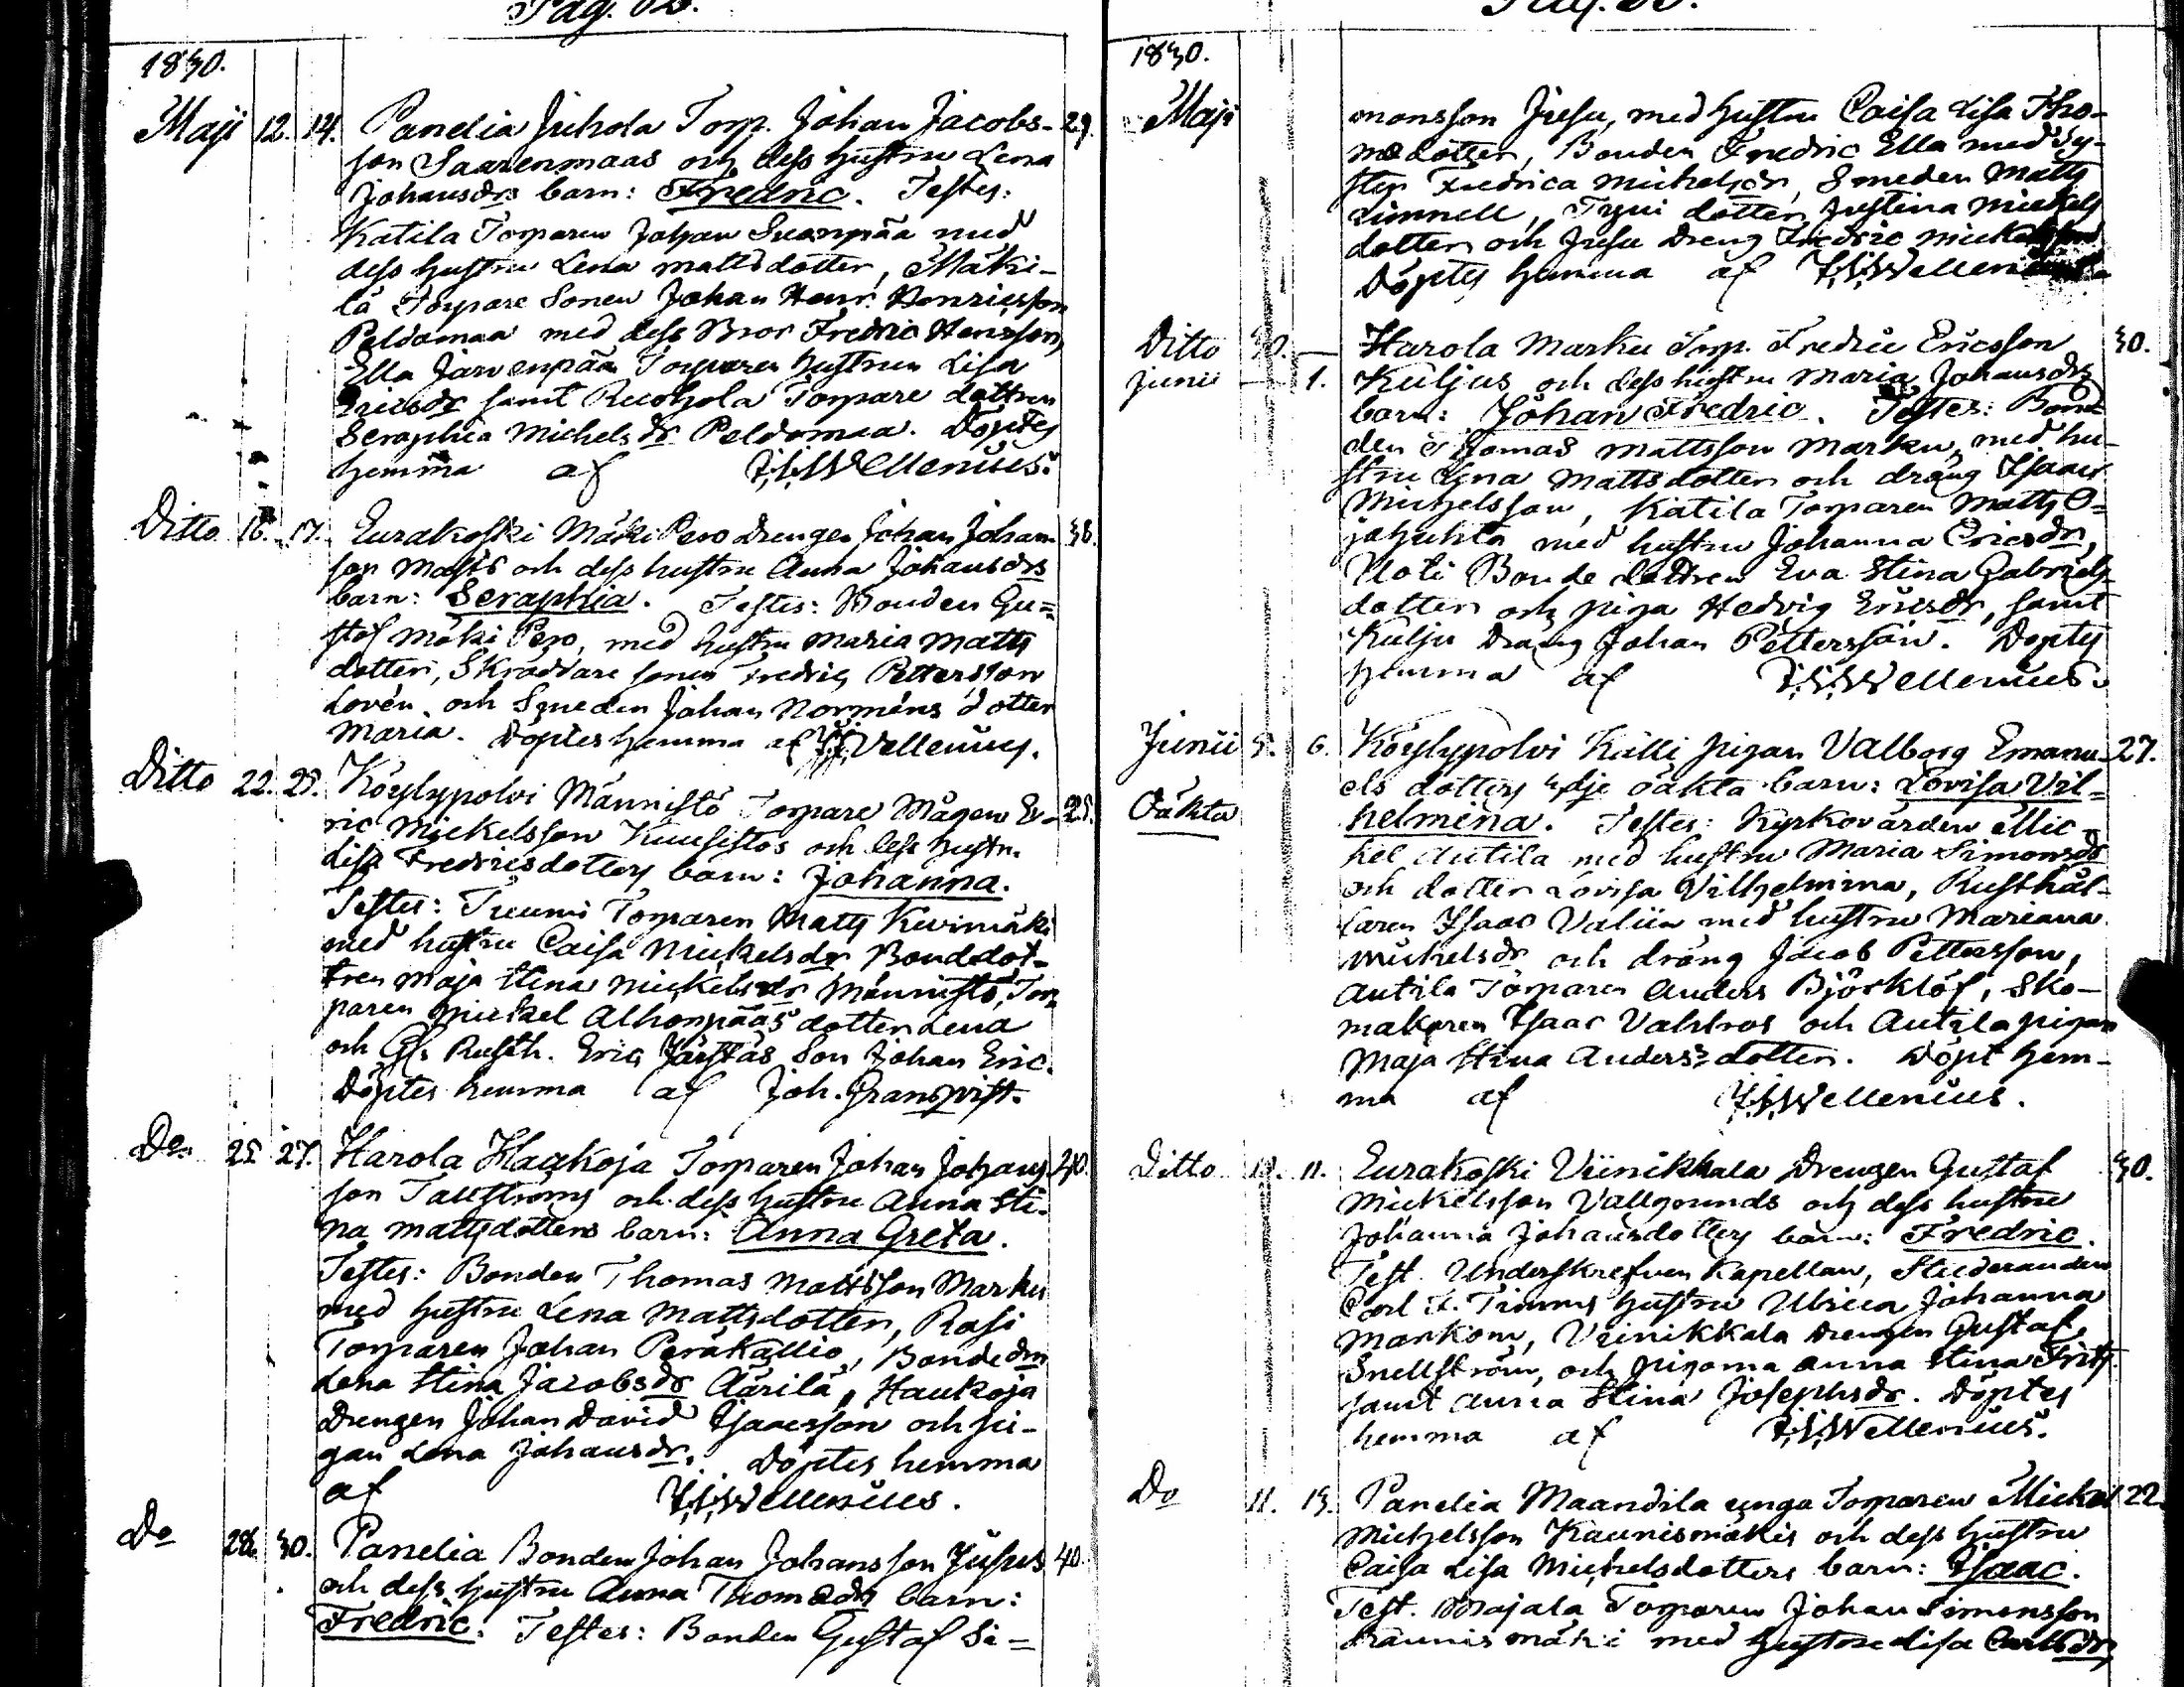 Pag.
1830.
Maji 12. 14. Panelia Juhola Torp. Johan Jacobs- 29.
son Saarenmaas och dess hustru Lena
Johansdrs barn: Fredric. Testes:
Katila Torparen Johan Suonpää med
dess hustru Lena Mattsdotter, Mäki-
lä Torpare Sonen Johan Henr. Henricsson
Peldomaa med dess Bror Fredric Henrsson,
Ella Järvenpää Torparen hustrun Lisa
Ericsdr samt Ruohola Torpare dottren
Seraphia Michelsdr Peldomaa. Döptes
hemma af Wellenius.
Ditto 16. 17. Eurakoski Mäki Pero Drengen Johan Johans 38.
son och dess hustru Anna Johansdrs
barn: Seraphia. Testes: Bonden Gu=
staf Mäki Pero, med hustru Maria Matts
dotter, Skräddare sonen Fredric Pettersson
Lovén och Smeden Johan Norméns dotter
Maria. Döptes hemma af Wellenius.
Ditto 22. 23. Köylypolvi Männistö Torpare Mågen E- 25.
ric Mickelsson Kuusistos och dess hustru
Lisa Fredricsdotters barn: Johanna.
Testes: Tuomi Torparen Matts Kivimäki
med hustru Caisa Mickelsdr Bonddot-
tren Maja Stina Mickelsdr Männistö, Tor
paren Mickel Alhonpääs dotter Lena
och Rusth. Eric Järstäs Son Johan Eric.
Döptes hemma af Joh. Granqvist.
Do 25 27. Harola Haukoja Torparen Johan Johans 40.
son Tallströms och dess hustru Anna Sti-
na Mattsdotters barn: Anna Greta.
Testes: Bonden Thomas Mattsson Marku
med hustru Lena Mattsdotter, Rasi
Torparen Johan Peräkallio, Bondedn
Lena Stina Jacobsdr Äärilä, Haukoja
Drengen Johan David Isaacsson och pi-
gan Lena Johansdr. Döptes hemma
af Wellenius.
Do 28. 30. Panelia Bonden Johan Johansson Jusus 40.
och dess hustru Anna Thomædrs barn:
Fredric. Testes: Bonden Gustaf Si=
1830.
Maji
monsson Jusu, med hustru Caisa Lisa Tho-
mædotter, Bonden Fredric Ella med Sy-
ster Fredrica Michelsdr, Smeden Matts
Limnell, dotter Justina Mickels
dotter och Jusu Dreng Fredric Mickelsson
Döptes hemma af Wellenius
Ditto 30. — Harola Marku Torp. Fredric Ericsson 30.
Junii — 1. Kuljus och dess hustru Maria Johansdrs
barn: Johan Fredric. Testes: Bon-
den Thomas Mattsson Marku, med hu-
stru Lena Mattsdotter och dräng Isaac
Michelsson, Katila Torparen Matts O=
jahuhta med hustru Johanna Ericsdr,
Uoti Bonde dottren Eva Stina Gabriels
dotter och piga Hedvig Ericsdr, samt
Kulju Dräng Johan Pettersson. Döptes
hemma af Wellenius.
Junii 5. 6. Köylypolvi Källi pigan Valborg Emanu- 27.
Oäkta
els dotters 4dje oäkta barn: Lovisa Vil=
helmina. Testes: Kyrkovärden Mic-
kel Antila med hustru Maria Simonsdr
och dotter Lovisa Vilhelmina, Rusthål-
laren Isaac Valiin med hustru Mariana
Mickelsdr och dräng Jacob Pettersson,
Antila Torparen Anders Björklöf, Sko-
makaren Isaac Vahlros och Antila pigan
Maja Stina Anders dotter. Döpt hem-
ma af Wellenius.
Ditto 10. 11. Eurakoski Viinikkala Drengen Gustaf 30.
Mickelsson Vallgrunds och dess hustru
Johanna Johansdotters barn: Fredric.
Test. Underskrefven Kapellan, Studeranden
Carl F. Timms hustru Ulrica Johanna
Markom, Veinikkala Drengen Gustaf
Snellström, och pigorna Anna Stina Frits.
samt Anna Stina Josephsdr. Döptes
hemma af Wellenius.
Do 11. 13. Panelia Maandila unga Torparen Mickel 22.
Michelsson Kaunismäkis och dess hustru
Caisa Lisa Michelsdotters barn: Isaac.
Test. Majala Torparen Johan Simonsson
Kaunismäki med hustru Lisa Carlsdr,